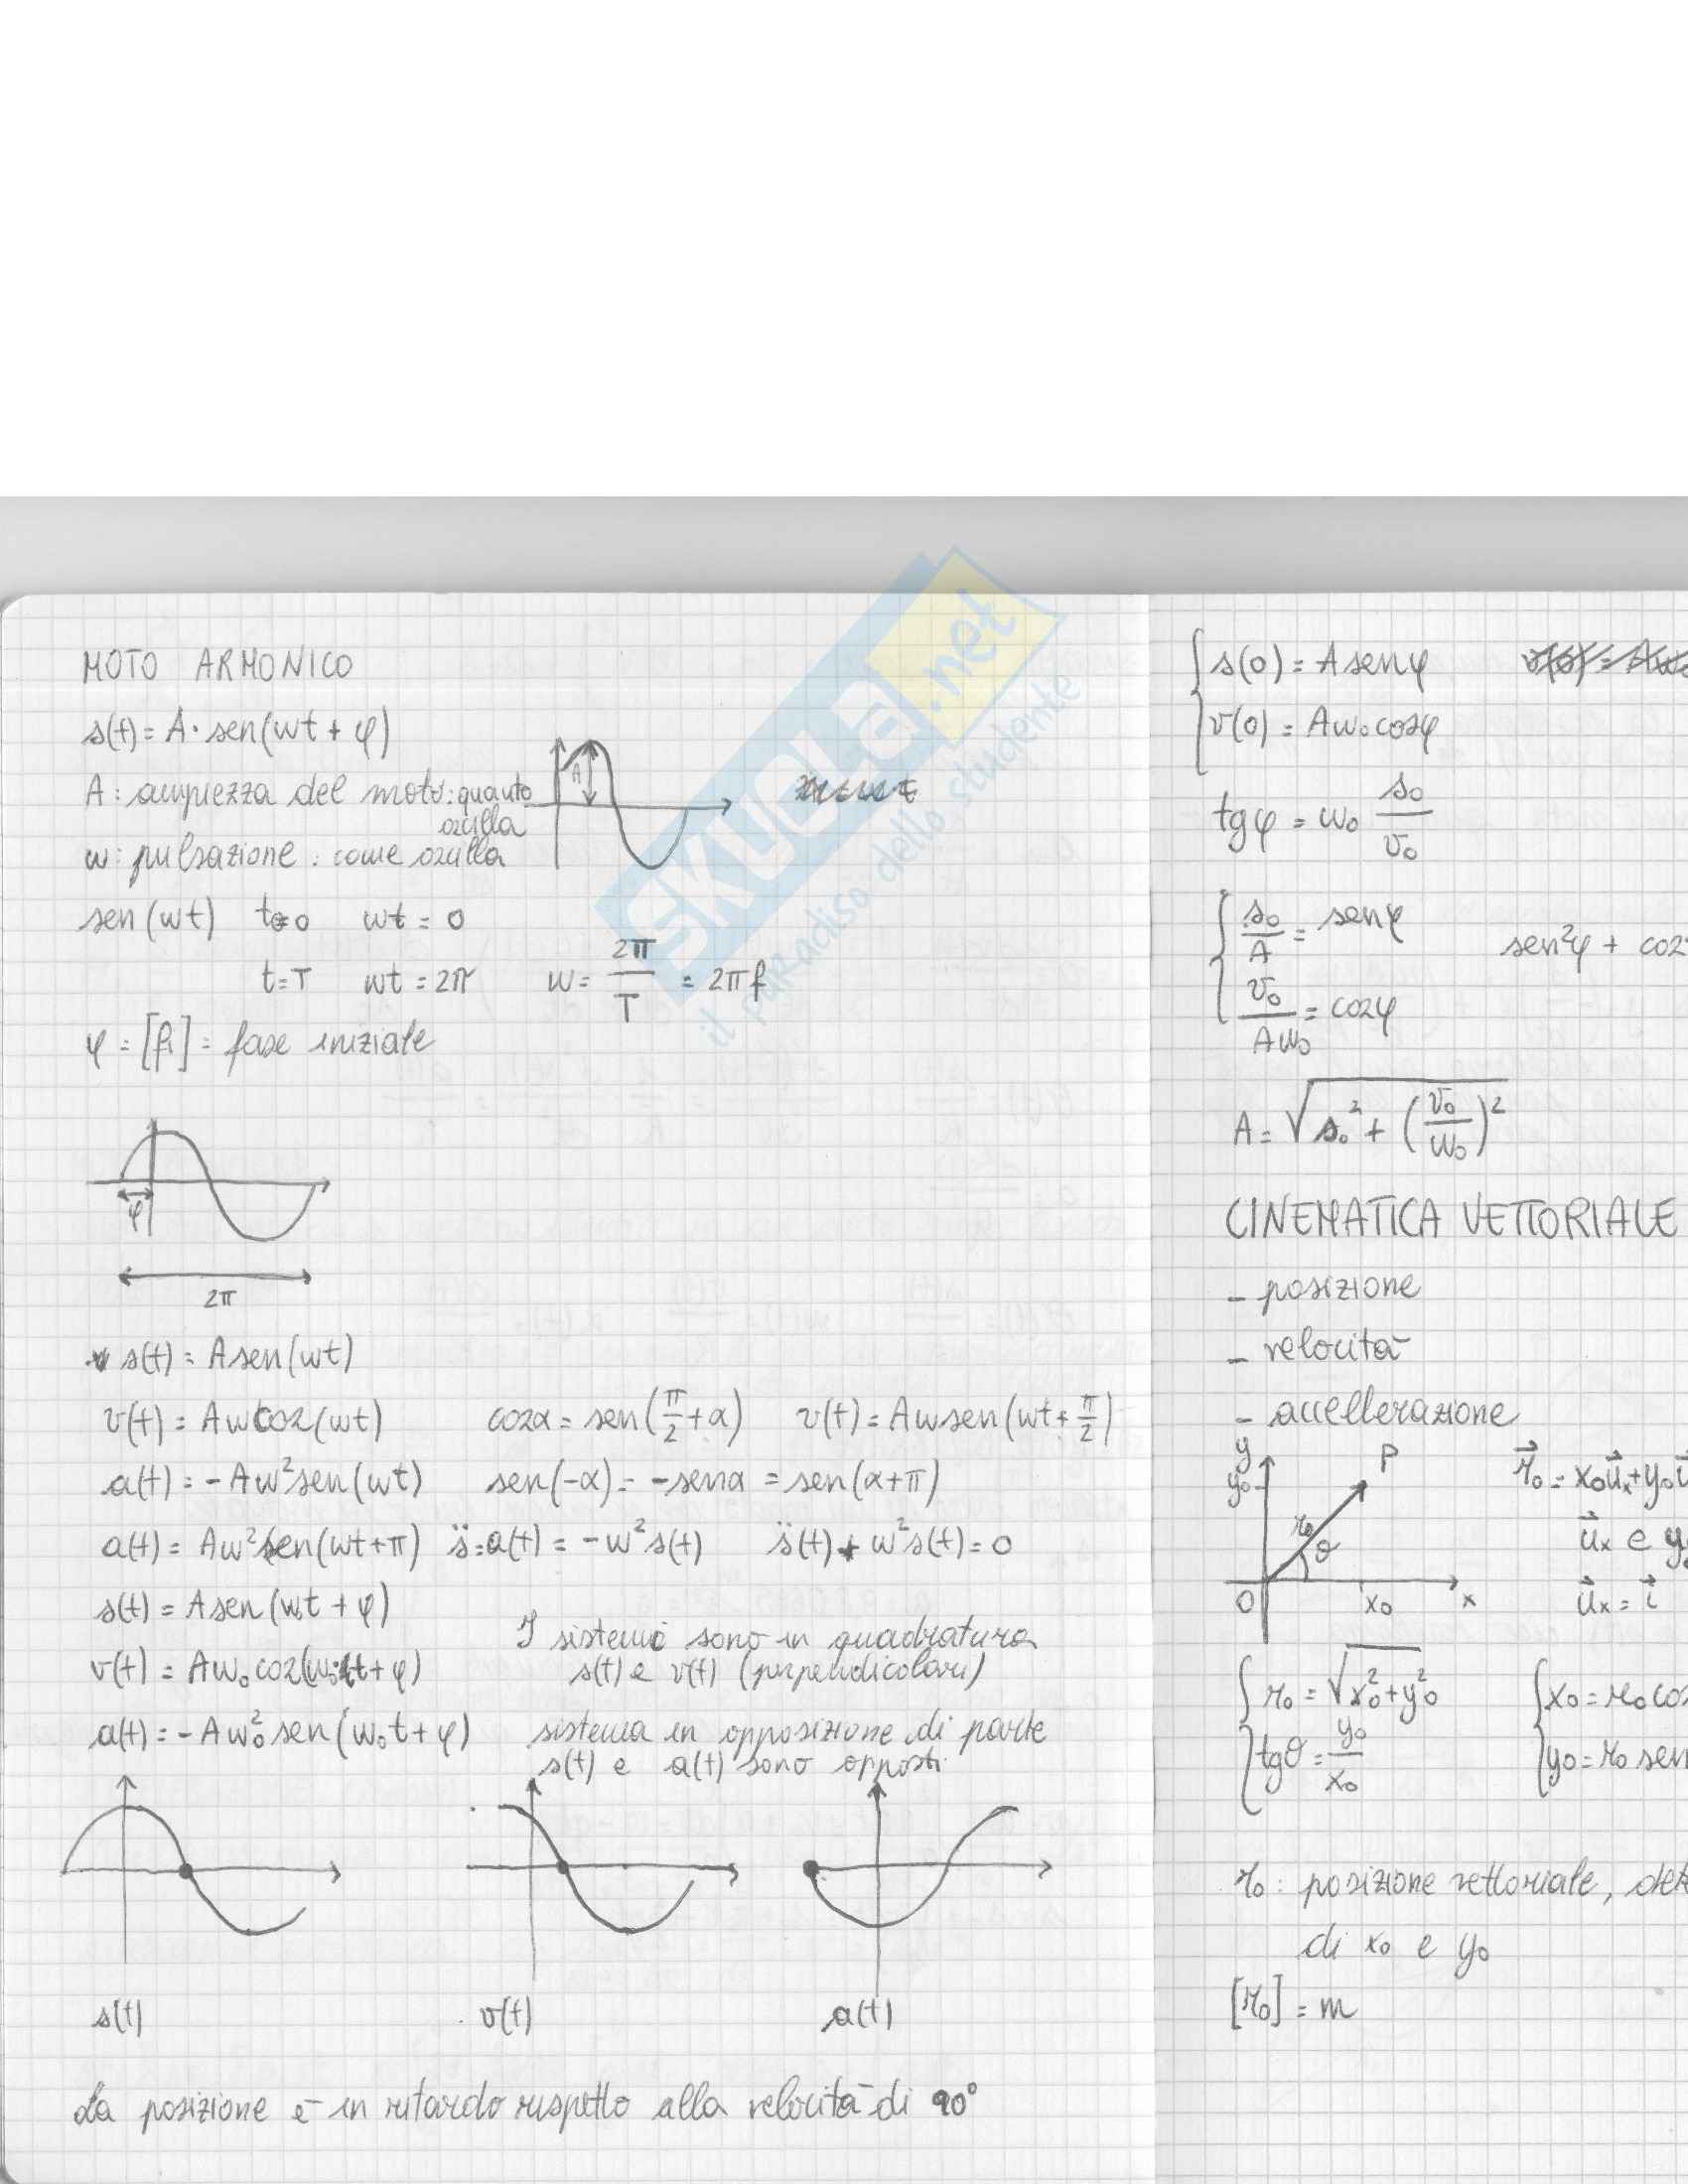 MOTO ARMONICO
s(t) = A · sen(wt + φ)
A : ampiezza del moto: quanto
oscilla
A
w : pulsazione : come oscilla
sen(wt) t=0 wt = 0
t=T wt = 2π w = 2π/T = 2πf
φ = [fi] = fase iniziale
φ
2π
s(t) = A sen(wt)
v(t) = Aw cos(wt) cosα = sen(π/2 + α) v(t) = Aw sen(wt + π/2)
a(t) = -Aw² sen(wt) sen(-α) = -senα = sen(α+π)
a(t) = Aw² sen(wt+π) s̈ = a(t) = -w² s(t) s̈(t) + w² s(t) = 0
s(t) = A sen(wt + φ)
I sistemi sono in quadratura
s(t) e v(t) (perpendicolari)
v(t) = Aw₀ cos(w₀t + φ)
a(t) = -Aw₀² sen(w₀t + φ)
sistema in opposizione di parte
s(t) e a(t) sono opposti
s(t) v(t) a(t)
La posizione è in ritardo rispetto alla velocità di 90°
s(0) = A senφ
v(0) = Aw₀ cosφ
tgφ = w₀ s₀/v₀
s₀/A = senφ sen²φ + cos
v₀/Aw₀ = cosφ
A = √(s₀² + (v₀/w₀)²)
CINEMATICA VETTORIALE
- posizione
- velocità
- accellerazione
y
y₀
P
r₀
θ
O x₀ x
r⃗₀ = x₀u⃗ₓ + y₀u⃗
u⃗ₓ e
u⃗ₓ = i⃗
r₀ = √(x₀² + y₀²) x₀ = r₀ cos
tgθ = y₀/x₀ y₀ = r₀ sen
r₀ : posizione vettoriale, det
di x₀ e y₀
[r₀] = m
SKUOLA.net
il paradiso dello studente